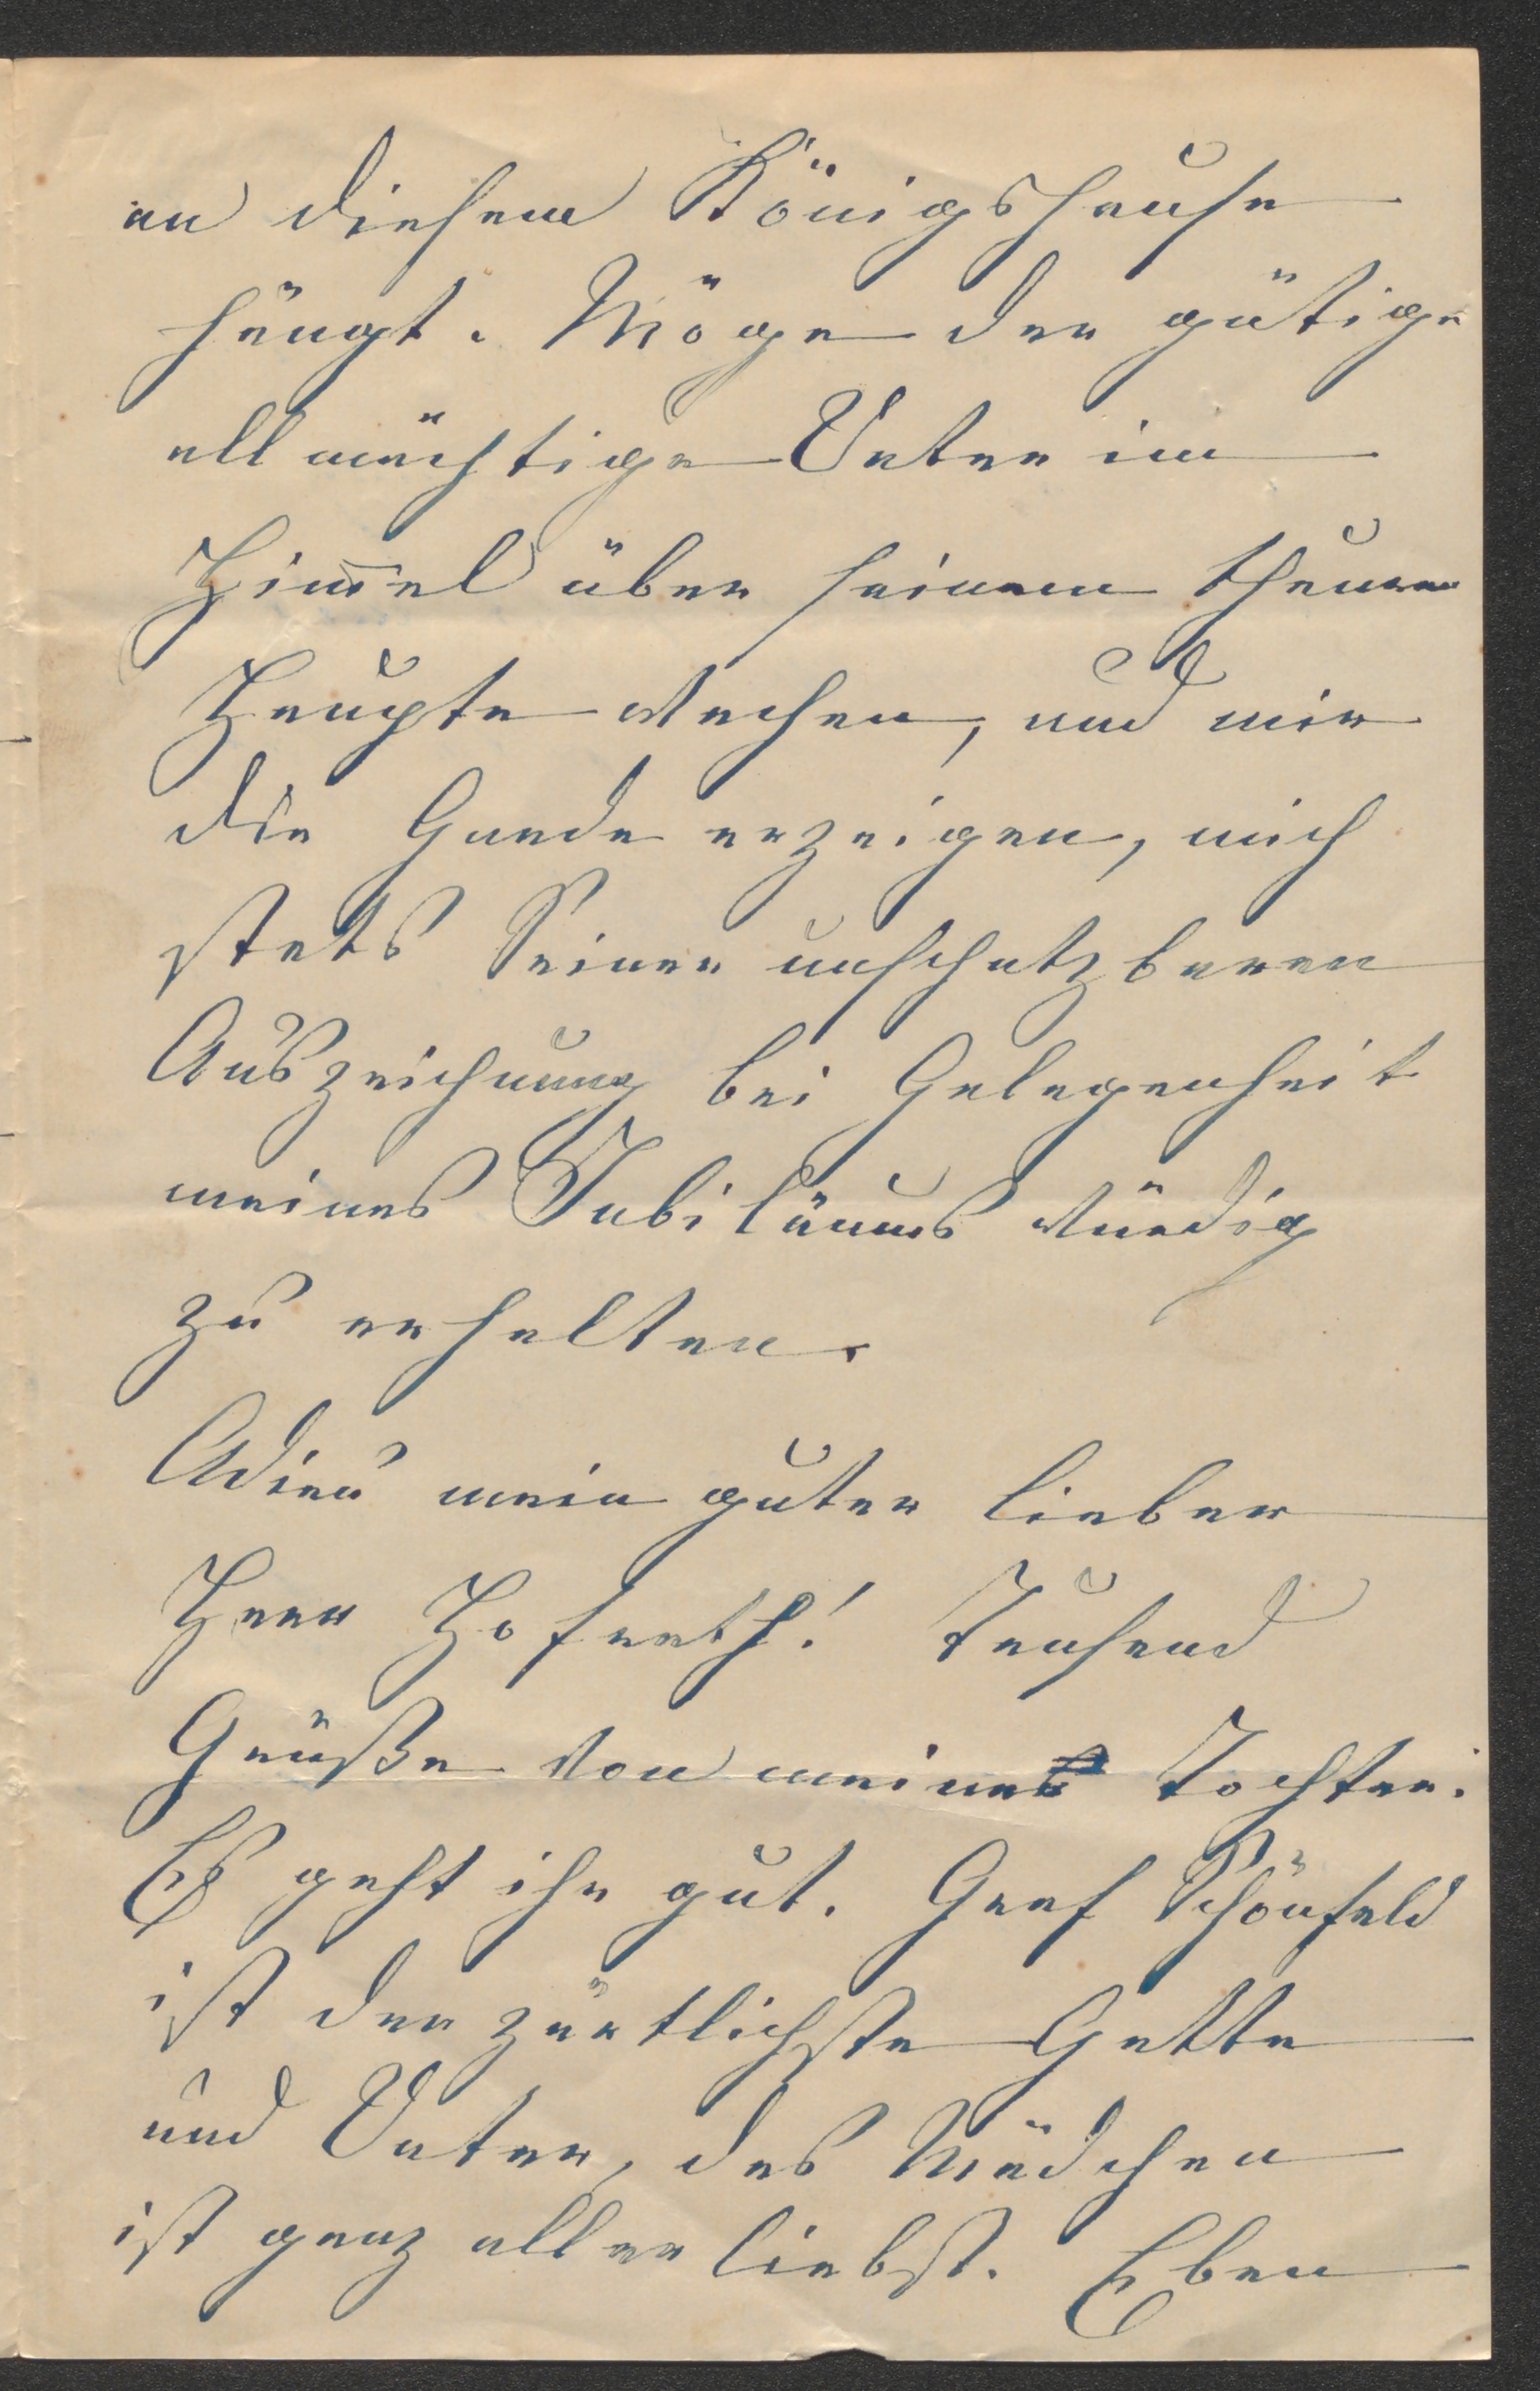 an diesem Königshause
hängt. Möge der gütige
allmächtige Vater im
Him̅el über seinem theuren
Haupte wachen, und mir
die Gnade erzeigen, mich
stets Seiner unschatzbaren
Auszeichnung bei Gelegenheit
meines Jubiläums würdig
zu erhalten.
Adieu mein guter lieber
Herr Hofrath! Tausend
Grüße von meiner Tochter.
Es geht ihr gut. Graf Schönfeld
ist der zärtlichste Gatte
und Vater, das Mädchen
ist ganz allerliebst. Eben